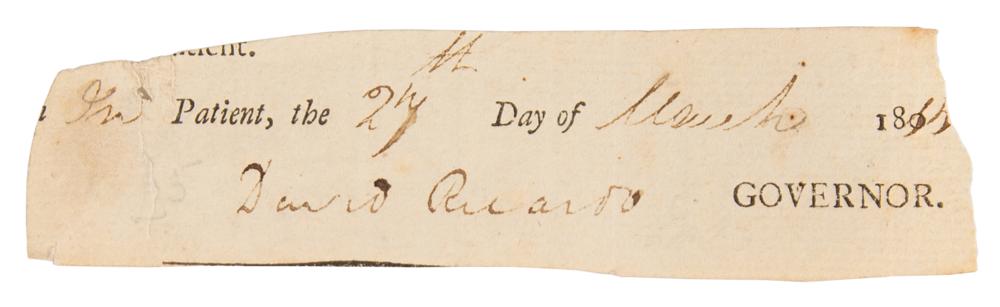 tient.
In Patient, the 27th Day of March 181
David Ricardo GOVERNOR.